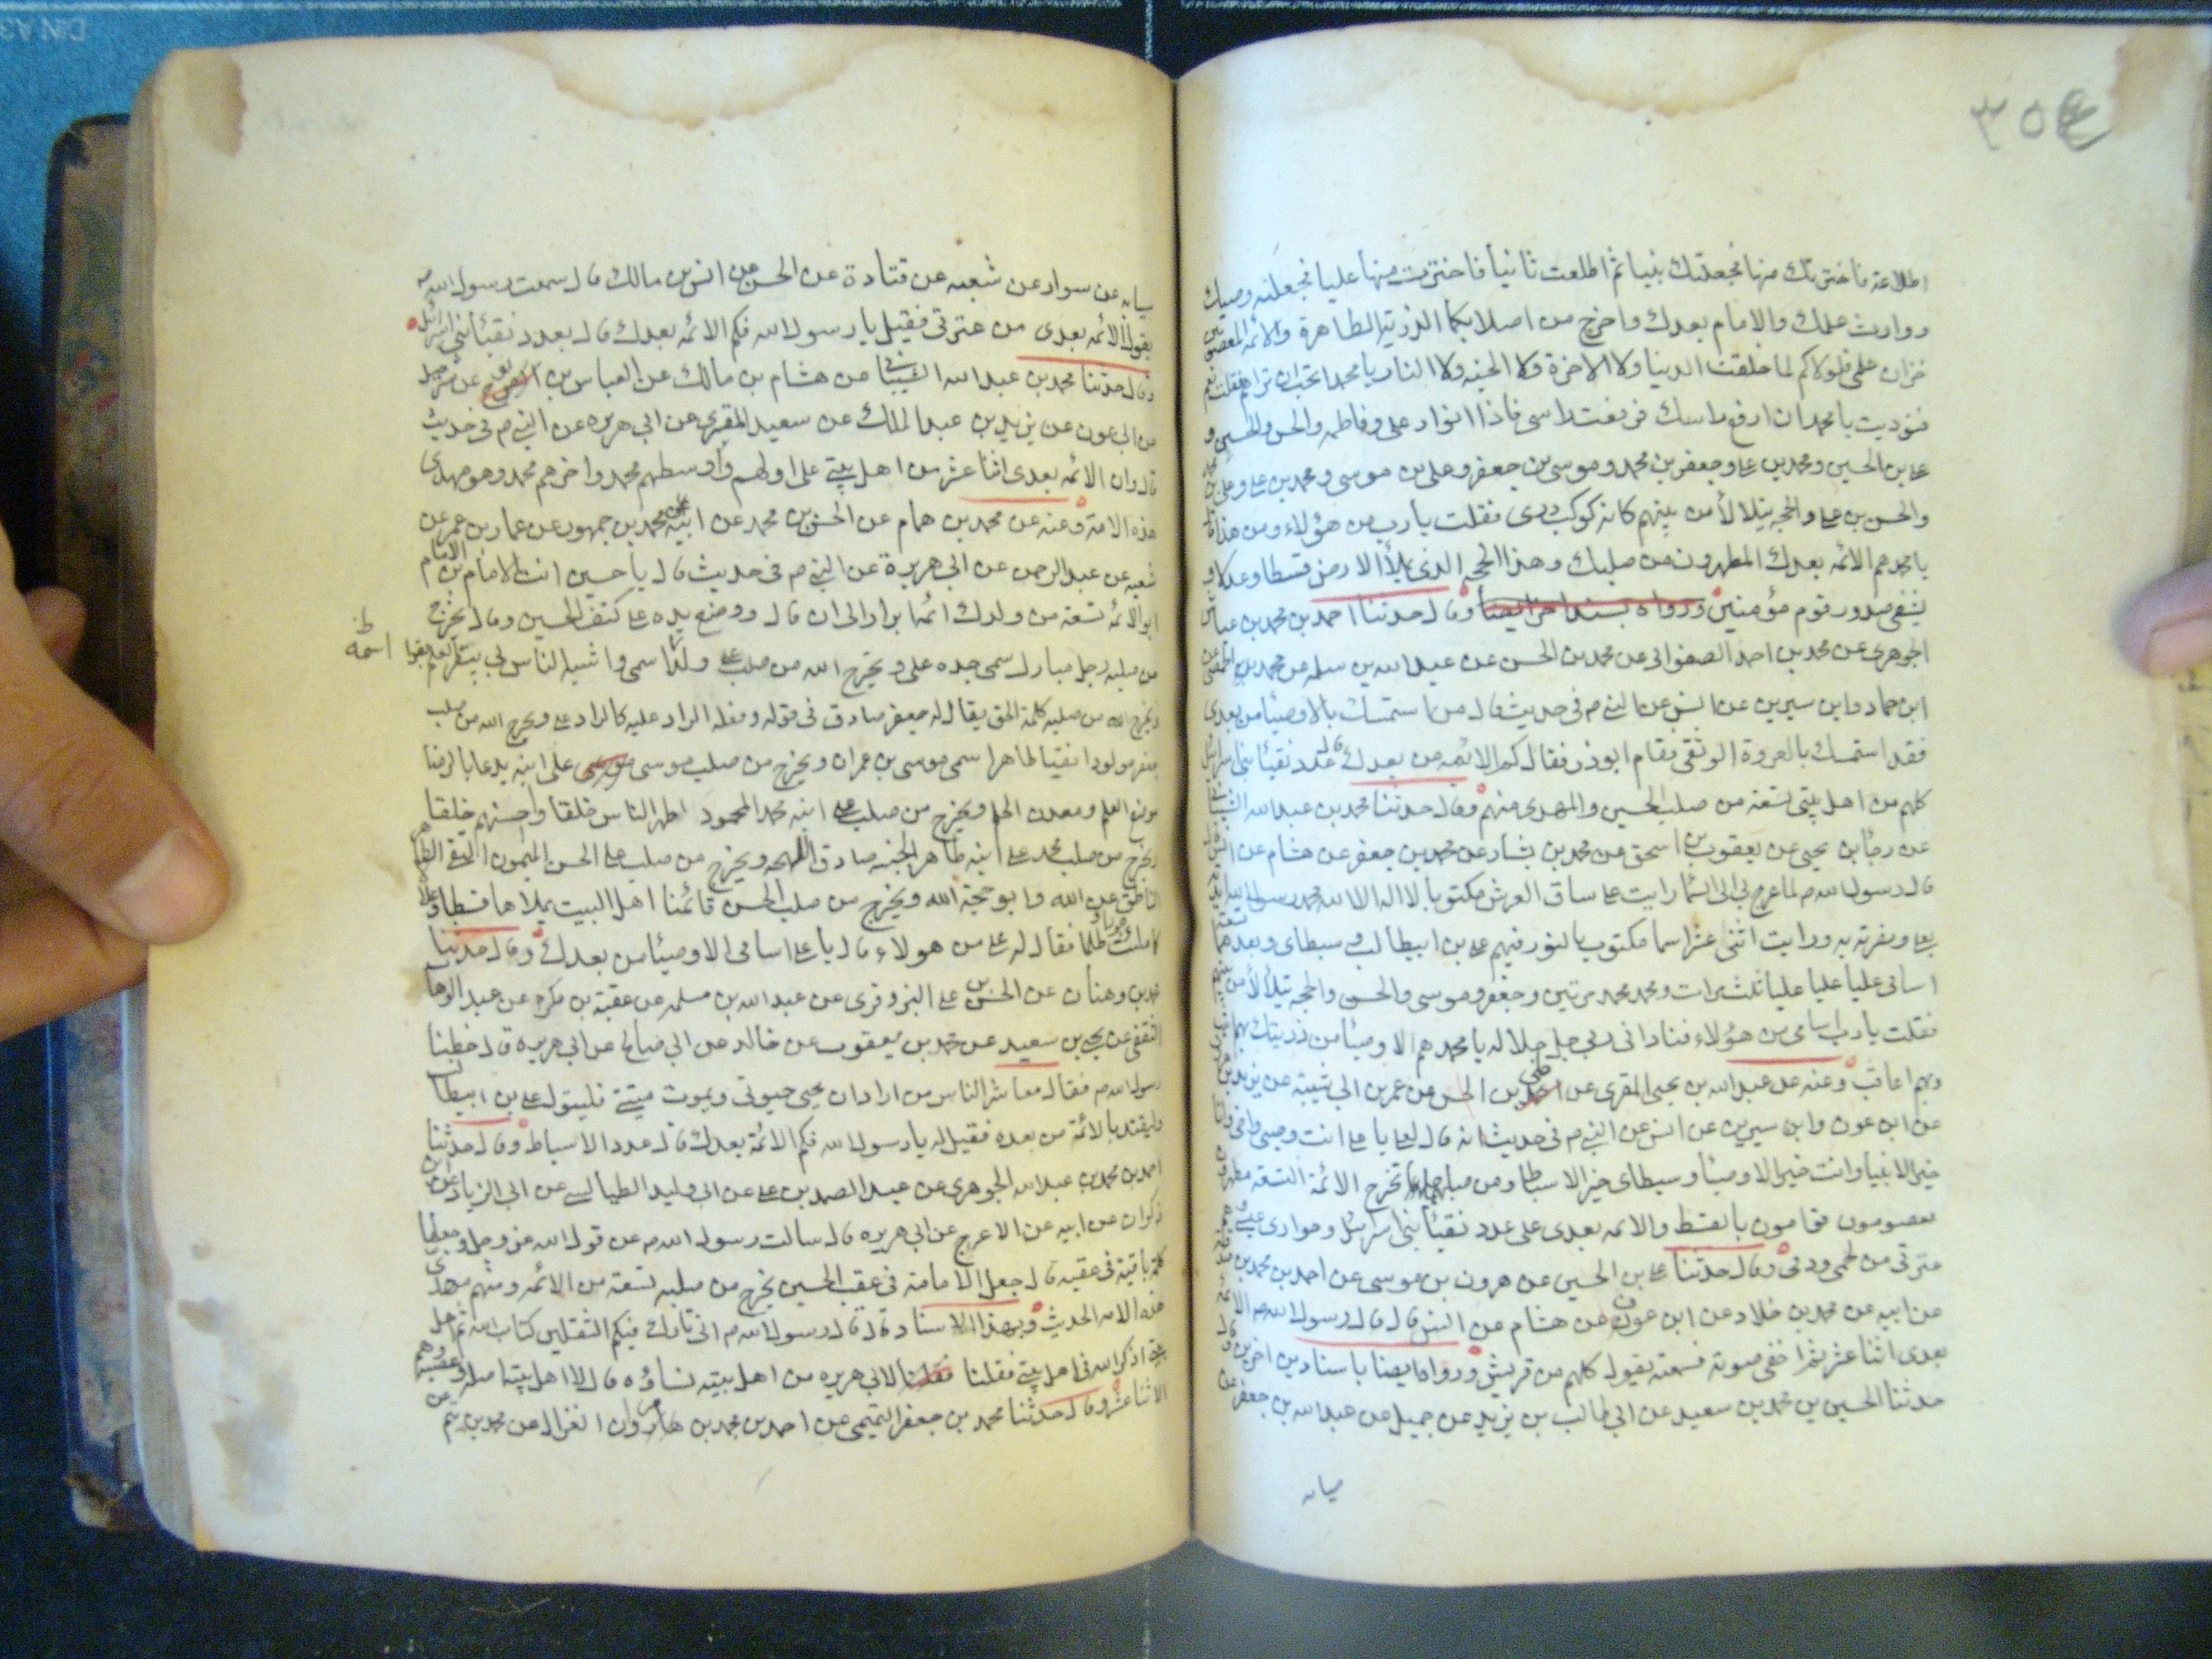 ٣٥٤
اطلاعة فاخترتك منها فجعلتك نبيا ثم اطلعت ثانيا فاخترت منها عليا فجعلته وصيك
ووارث علمك والامام بعدك واخرج من اصلابكما الذرية الطاهرة والائمة المعصومين
خزان علمي فلولاكم لما خلقت الدنيا ولا الاخرة ولا الجنه ولا النار يا محمد اتحب ان تراهم قلت نعم
فنوديت يا محمد ان ارفع راسك فرفعت راسي فاذا انوار علي وفاطمه والحسن والحسين و
علي بن الحسين ومحمد بن علي وجعفر بن محمد وموسى بن جعفر وعلي بن موسى ومحمد بن علي وعلي بن محمد
والحسن بن علي والحجه يتلالأ من بينهم كانه كوكب دري فقلت يا رب من هؤلاء ومن هذا قال
يا محمد هم الائمه بعدك المطهرون من صلبك وهذا الحجه الذي يملأ الارض قسطا وعدلا و
يشفي صدور قوم مؤمنين ورواه بسند اخر ايضا وقال حدثنا احمد بن محمد بن عياش
الجوهري عن محمد بن احمد الصفواني عن محمد بن الحسن عن عبد الله بن سلمه عن محمد بن
ابن حماد وابن سيرين عن انس عن النبي م في حديث قال من استمسك بالاوصيأ من بعدي
فقد استمسك بالعروة الوثقى فقام ابوذر فقال كم الائمه من بعدك قال عدد نقبأ بني اسرائيل
كلهم من اهل بيتي تسعة من صلب الحسين والمهدي منهم وقال حدثنا محمد بن عبد الله الشيباني
عن رجأ بن يحيى عن يعقوب بن اسحق عن محمد بن بشار عن محمد بن جعفر عن هشام عن انس
قال رسول الله م لما عرج بي الى السمأ رايت على ساق العرش مكتوبا لا اله الا الله محمد رسول الله ايدته
بعلي ونصرته به ورايت اثنى عشر اسما مكتوب بالنور فيهم علي بن ابيطالب وسبطاي وبعدهما تسعة
اسامي عليا عليا عليا ثلث مرات ومحمد محمد مرتين وجعفر وموسى والحسن والحجه يتلألأ من بينهم
فقلت يا رب اسامي من هؤلاء فناداني ربي جل جلاله يا محمد هم الاوصيأ من ذريتك بهم اثيب
وبهم اعاقب وعنه عن عبد الله بن يحيى المقري عن علي بن الحسن عن عمر بن ابي شيبة عن يزيد بن
عن ابن عون وابن سيرين عن انس عن النبي م في حديث انه قال لعلي يا علي انت وصيي واخي وانا
خير الانبيا وانت خير الاوصيأ وسبطاي خير الاسباط ومن صلبهما تخرج الائمة التسعة مطهرون
معصومون قوامون بالقسط والائمه بعدي على عدد نقبأ بني اسرائيل وحواري عيسى هم
عترتي من لحمي ودمي وقال حدثنا علي بن الحسين عن هرون بن موسى عن احمد بن محمد بن
عن ابيه عن محمد بن خلاد عن ابن عون عن هشام عن انس قال قال رسول الله م الائمة
بعدي اثنا عشر ثم اخفى صوته فسمعته يقول كلهم من قريش ورواه ايضا باسنادين اخرين وقال
حدثنا الحسين بن محمد بن سعيد عن ابي طالب بن يزيد عن جميل عن عبد الله بن جعفر عن
سبابه عن سوار عن شعبه عن قتادة عن الحسن عن انس بن مالك قال سمعت رسول الله م
يقول الائمه بعدي من عترتي فقيل يا رسول الله فكم الائمه بعدك قال بعدد نقبأ بني اسرائيل
وقال حدثنا محمد بن عبد الله الشيباني عن هشام بن مالك عن العباس بن الفرج عن شرحبيل
بن ابي عون عن يزيد بن عبد الملك عن سعيد المقبري عن ابي هريره عن النبي م في حديث
قال وان الائمه بعدي اثنا عشر من اهل بيتي علي اولهم واوسطهم محمد واخرهم محمد وهو مهدي
هذه الامة وعنه عن محمد بن همام عن الحسن بن محمد عن ابيه عن محمد بن جمهور عن عمار بن عمر عن
شعبه عن عبد الرحمن عن ابي هريرة عن النبي م في حديث قال يا حسين انت الامام بن الامام
ابو الائمه تسعة من ولدك ائمة ابرار الى ان قال ووضع يده على كتف الحسين وقال يخرج
من صلبه رجل مبارك سمي جده علي ويخرج الله من صلب علي ولدا اسمه اسمي واشبه الناس بي يبقر العلم بقرا
ويخرج الله من صلبه كلمة الحق يقال له جعفر صادق في قوله وفعله الراد عليه كالراد علي ويخرج الله من صلب
جعفر مولودا نقيا طاهرا سمي موسى بن عمران ويخرج من صلب موسى علي ابنه يدعا بالرضا
موضع العلم ومعدن الحلم ويخرج من صلب علي ابنه محمد المحمود اطهر الناس خلقا واحسنهم خلقا
ويخرج من صلب محمد علي ابنه طاهر الجنبه صادق اللهجه ويخرج من صلب علي الحسن الميمون النقي الطاهر
الناطق عن الله وابو حجة الله ويخرج من صلب الحسن قائمنا اهل البيت يملاها قسطا وعدلا
كما ملئت جورا وظلما فقال له علي من هولاء قال يا علي اسامي الاوصيأ من بعدك وقال حدثنا
محمد بن وهبان عن الحسن بن علي البزوفري عن عبد الله بن مسلمه عن عقبة بن مكرم عن عبد الوهاب
الثقفي عن يحيى بن سعيد عن محمد بن يعقوب عن خالد عن ابي صالح عن ابي هريره قال خطبنا
رسول الله م فقال معاشر الناس من اراد ان يحيى حيوتي ويموت ميتتي فليتول علي بن ابيطالب
وليقتد بالائمة من بعده فقيل له يا رسول الله فكم الائمة بعدك قال عدد الاسباط وقال حدثنا
احمد بن محمد بن عبد الله الجوهري عن عبد الصمد بن علي عن ابي وليد الطيالسي عن ابي الزياد عن بن
ذكوان عن ابيه عن الاعرج عن ابي هريره قال سالت رسول الله م عن قول الله عز وجل وجعلها
كلمة باقية في عقبه قال جعل الامامة في عقب الحسين يخرج من صلبه تسعة من الائمه ومنهم مهدي
هذه الامه الحديث وبهذا الاسناد قال قال رسول الله م اني تارك فيكم الثقلين كتاب الله ثم اهل
بيتي اذكر الله في اهل بيتي فقلنا لابي هريره من اهل بيته نساؤه قال لا اهل بيته اصله وعصبته وهم
الاثنا عشر وقال حدثنا محمد بن جعفر التميمي عن احمد بن محمد بن هارون الغزال عن محمد بن تيم